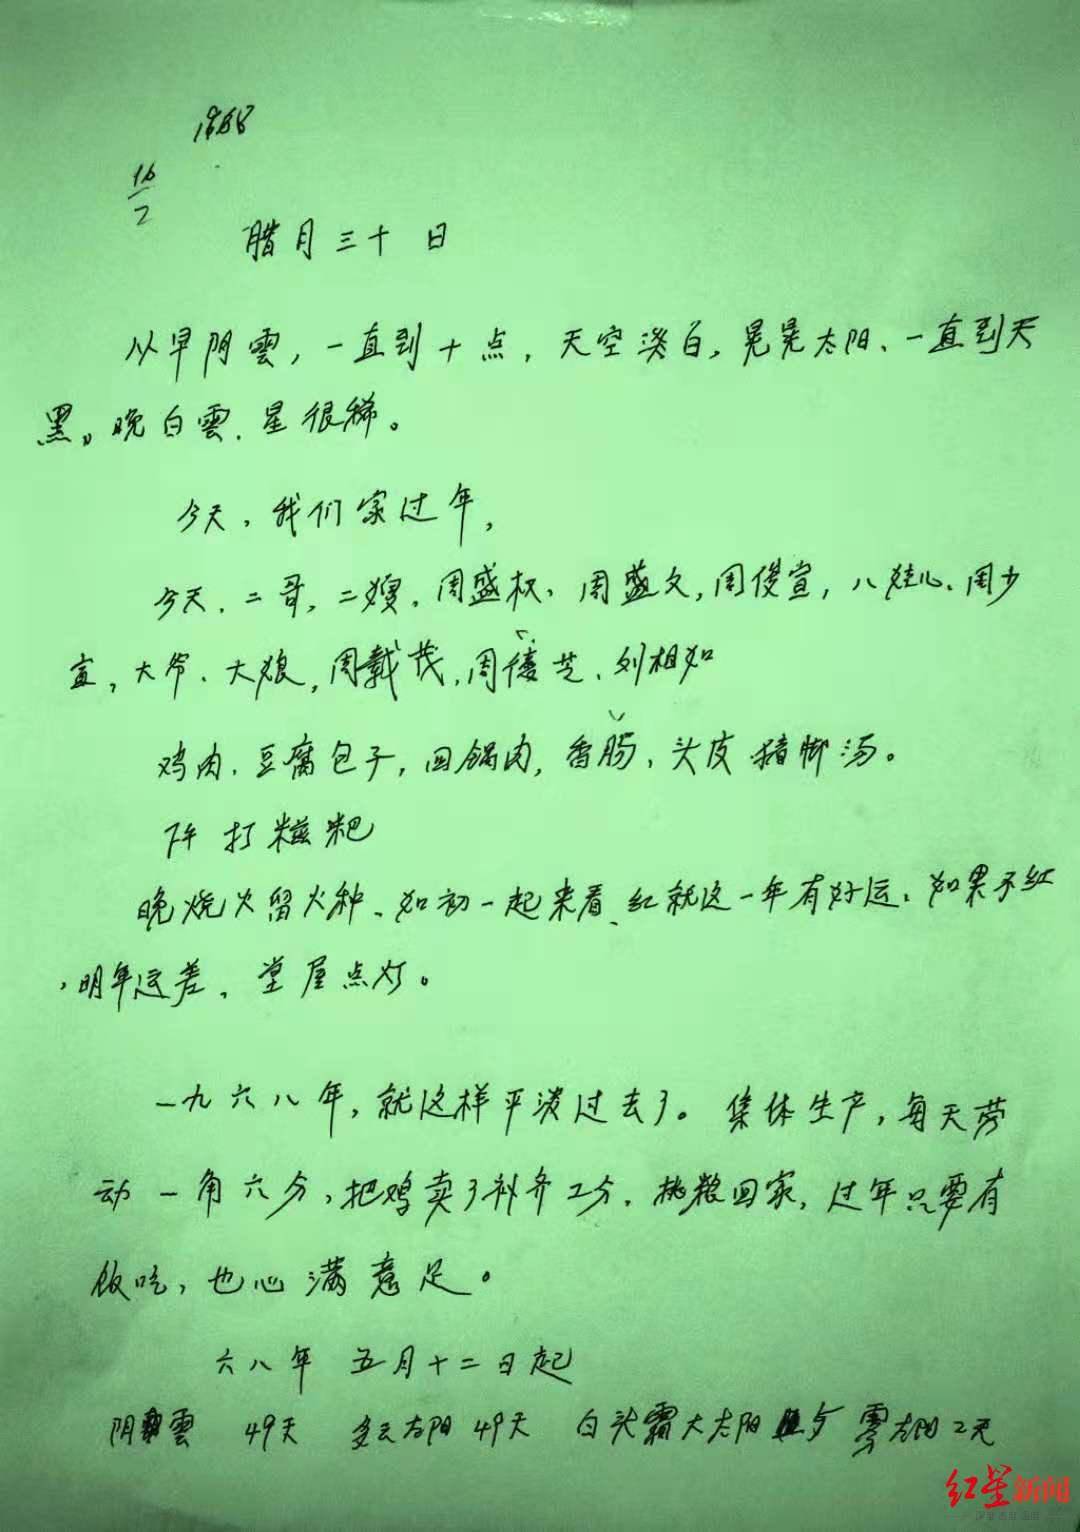 1968
16
2
腊月三十日
从早阴雲，一直到十点，天空淡白，晃晃太阳、一直到天
黑。晚白雲、星很稀。
今天，我们家过年，
今天、二哥，二嫂，周盛权、周盛文，周俊宣，八娃儿、周少
宣，大爷、大娘，周载茂，周俊芝、刘相如
鸡肉、豆腐包子，回锅肉，香肠、头皮猪脚汤。
下午打糍粑
晚烧火留火种、如初一起来看、红就这一年有好运、如果不红
，明年运差、堂屋点灯。
一九六八年，就这样平淡过去了。集体生产，每天劳
动一角六分，把鸡卖了补齐工分，挑粮回家，过年只要有
饭吃，也心满意足。
六八年 五月十二日起
阴雲 49天 多云太阳49天 白头霜大太阳 雾太阳2天
红星新闻